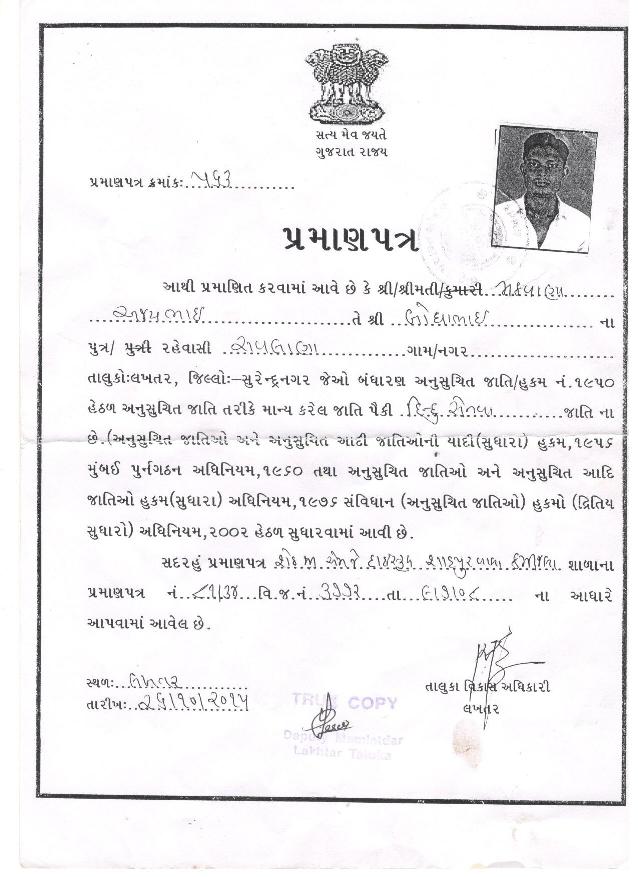 સત્ય મેવ જયતે
ગુજરાત રાજય
પ્રમાણપત્ર ક્રમાંકઃ ૫૬૩
પ્રમાણપત્ર
આથી પ્રમાણિત કરવામાં આવે છે કે શ્રી/શ્રીમતી/કુમારી મકવાણા
અજયભાઇ તે શ્રી બોઘાભાઇ ના
પુત્ર/ પુત્રી રહેવાસી ગામ/નગર
તાલુકોઃલખતર, જિલ્લોઃ-સુરેન્દ્રનગર જેઓ બંધારણ અનુસુચિત જાતિ/હુકમ નં.૧૯૫૦
હેઠળ અનુસુચિત જાતિ તરીકે માન્ય કરેલ જાતિ પૈકી હિન્દુ સેનવા જાતિ ના
છે.(અનુસુચિત જાતિઓ અને અનુસુચિત આદી જાતિઓની યાદી(સુધારા) હુકમ,૧૯૫૬
મુંબઈ પુર્નગઠન અધિનિયમ,૧૯૬૦ તથા અનુસુચિત જાતિઓ અને અનુસુચિત આદિ
જાતિઓ હુકમ(સુધારા) અધિનિયમ,૧૯૭૬ સંવિધાન (અનુસુચિત જાતિઓ) હુકમો (દ્રિતિય
સુધારો) અધિનિયમ,૨૦૦૨ હેઠળ સુધારવામાં આવી છે.
સદરહું પ્રમાણપત્ર શેઠ એમ જે હાઇસ્કુલ શાળાના
પ્રમાણપત્ર નં ૮૧/૩૪ વિ.જ.નં ૩૧૧૨ તા ૯/૧/૦૮ ના આધારે
આપવામાં આવેલ છે.
સ્થળઃ લખતર
તારીખઃ ૨૬/૧૦/૨૦૧૫
તાલુકા વિકાસ અધિકારી
લખતર
TRUE COPY
Deputy Mamlatdar
Lakhtar Taluka